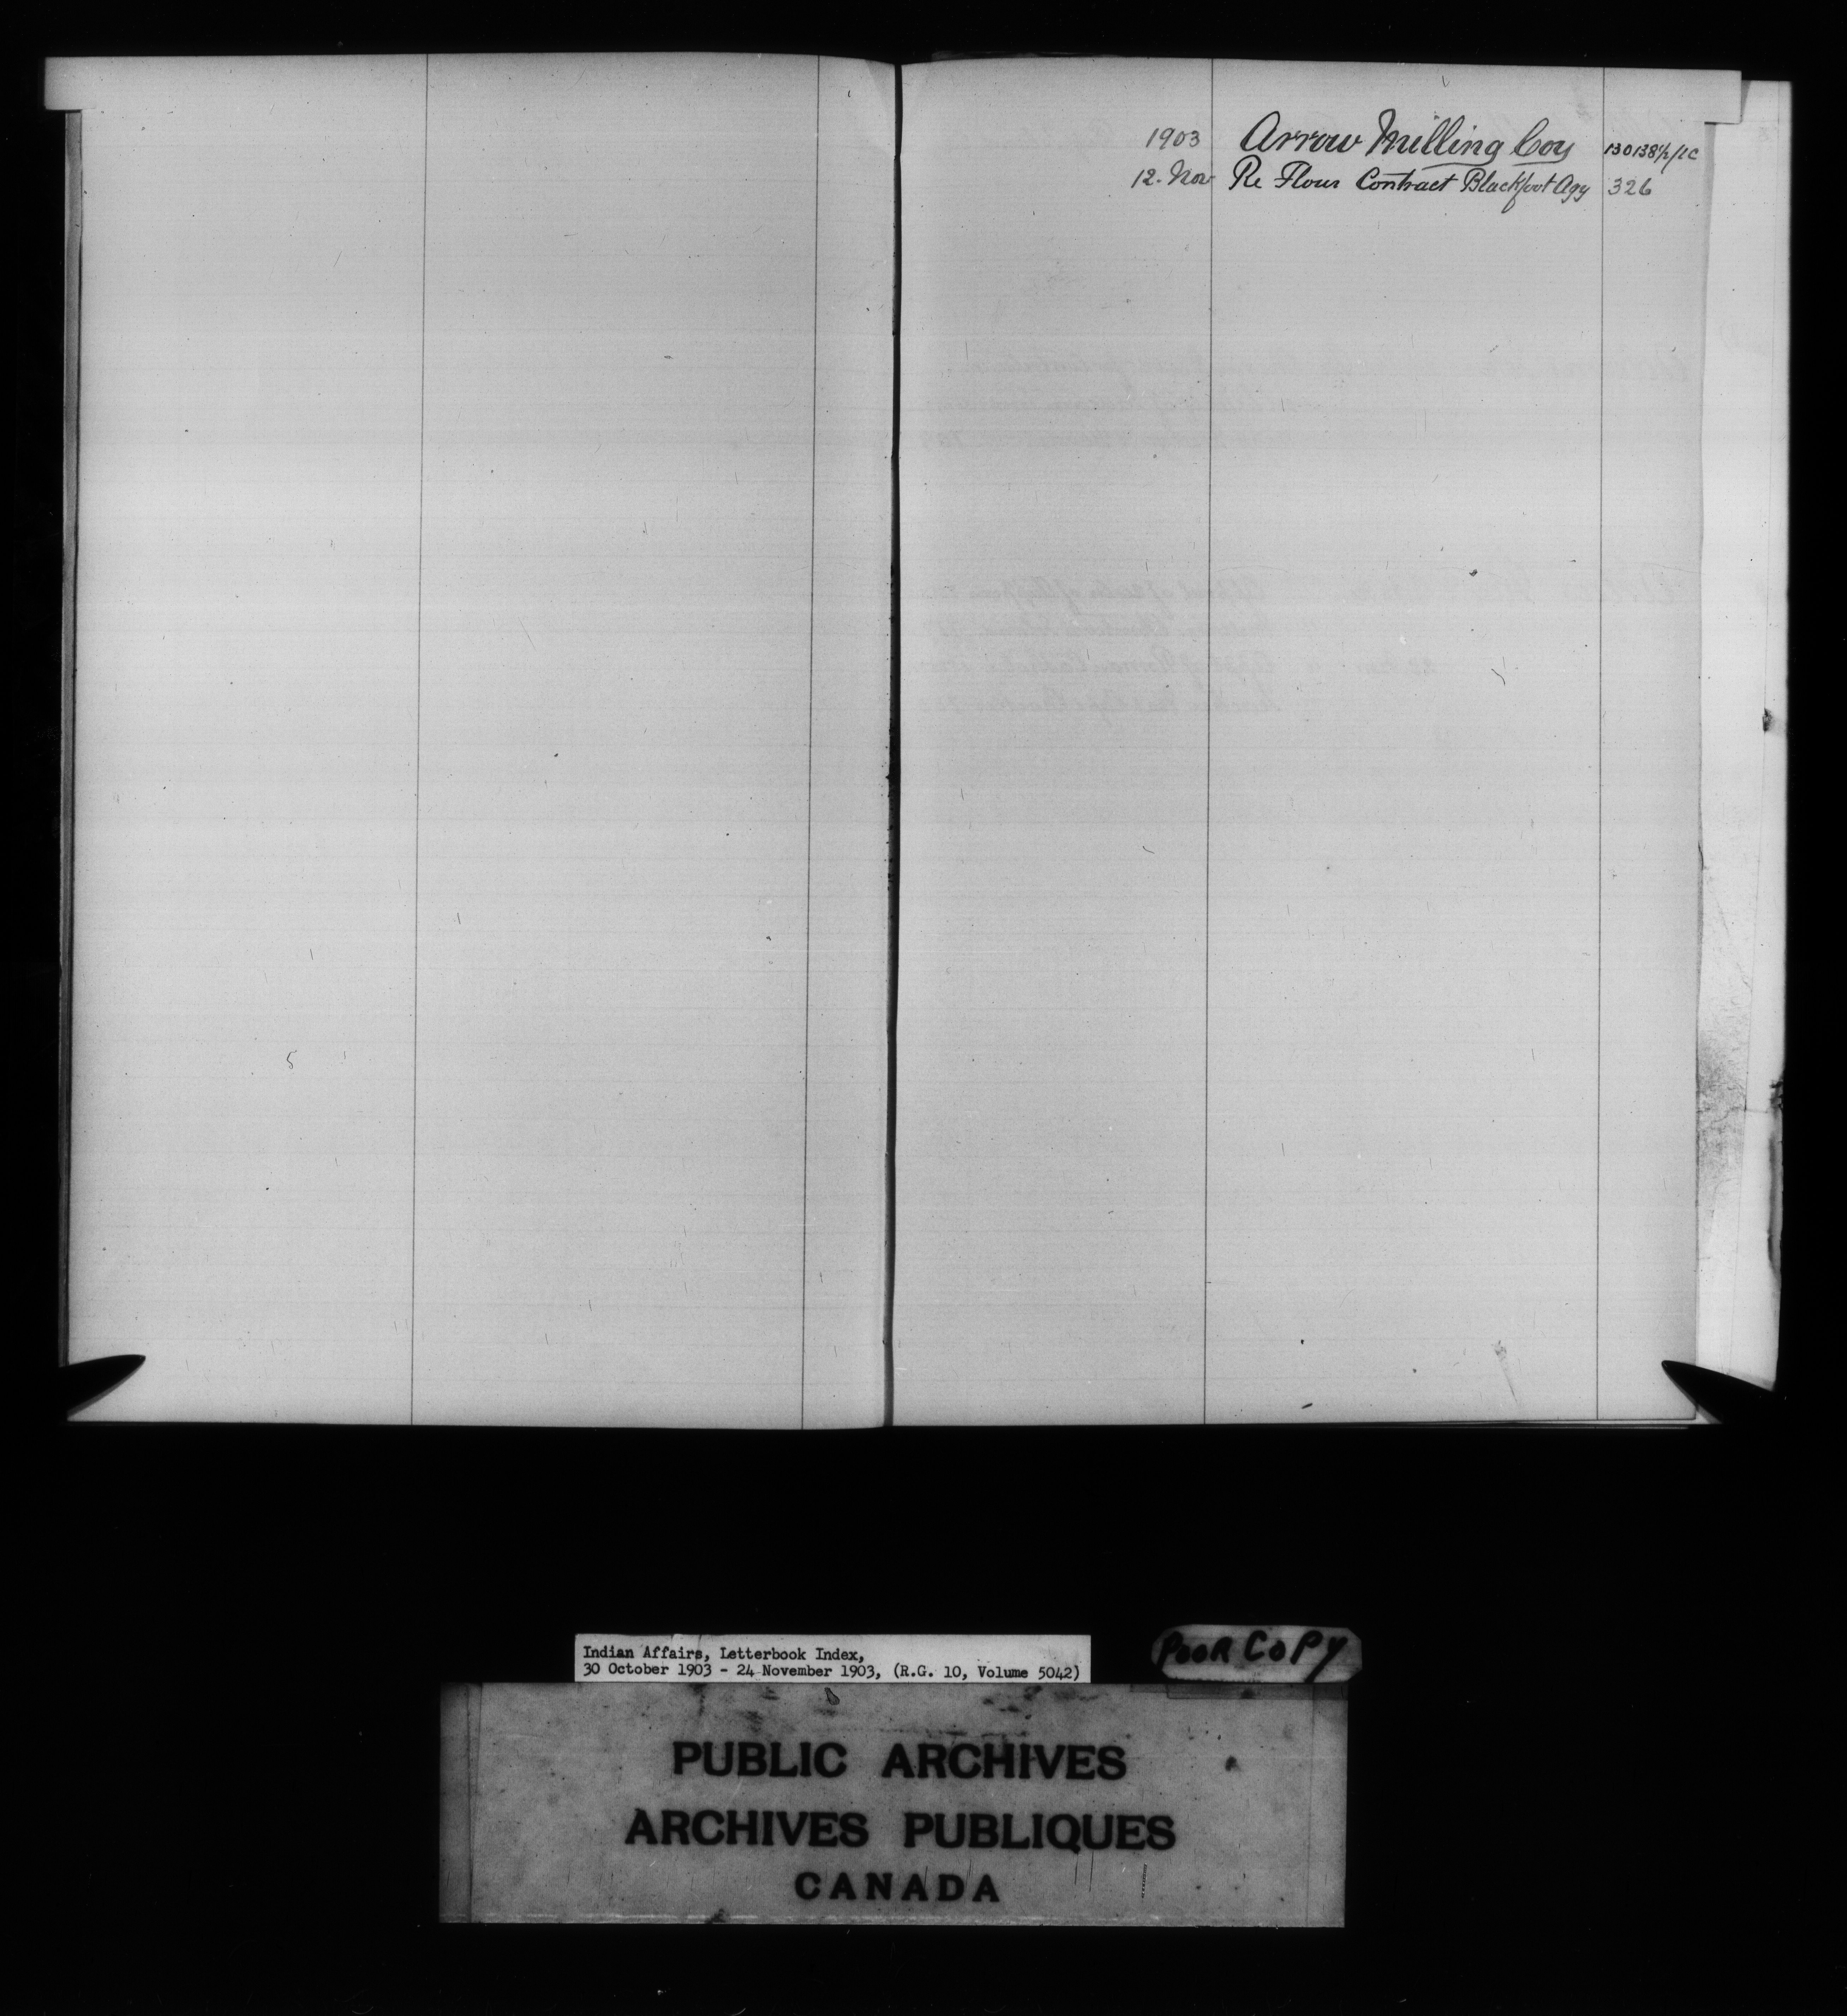 1903 Arrow Milling Coy 130138½/1C
12. Nov Re Flour Contract Blackfoot Agy 326
Indian Affairs, Letterbook Index,
30 October 1903 - 24 November 1903, (R.G. 10, Volume 5042)
POOR COPY
PUBLIC ARCHIVES
ARCHIVES PUBLIQUES
CANADA